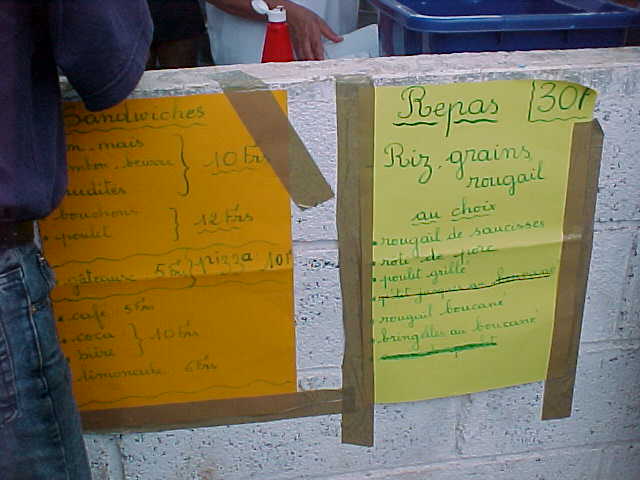 Sandwiches
mais
beurre
10 frs
bouchons
poulet
12 frs
gâteaux 5 frs
pizza 10f
café 5 frs
coca
bière
10 frs
limonade 6 frs
Repas 30f
Riz, grains,
rougail
au choix
rougail de saucisses
roti de porc
poulet grillé
p'tit jacques au boucané
rougail boucané
bringelles au boucané